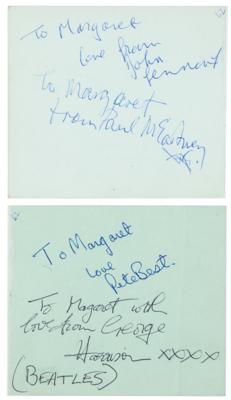 To Margaret
love from
John
Lennon
To Margaret
from Paul McCartney
xxx
To Margaret
love
Pete Best.
To Magaret with
love from George
Harrison xxxx
(BEATLES)